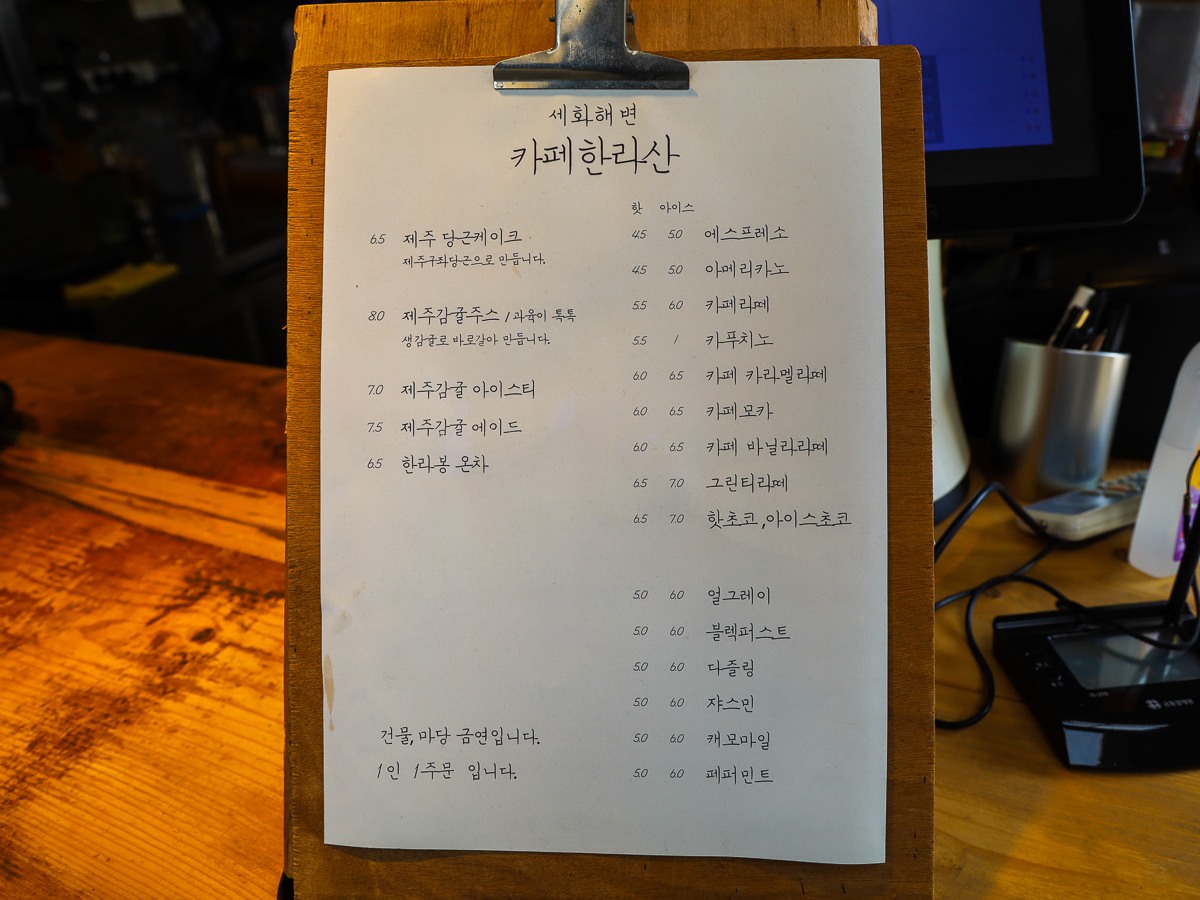 세화해변
카페한라산
6.5 제주 당근케이크
제주구좌당근으로 만듭니다.
8.0 제주감귤주스 / 과육이 톡톡
생감귤로 바로갈아 만듭니다.
7.0 제주감귤 아이스티
7.5 제주감귤 에이드
6.5 한라봉 온차
건물, 마당 금연입니다.
1인 1주문 입니다.
핫 아이스
4.5 5.0 에스프레소
4.5 5.0 아메리카노
5.5 6.0 카페라떼
5.5 / 카푸치노
6.0 6.5 카페 카라멜라떼
6.0 6.5 카페모카
6.0 6.5 카페 바닐라라떼
6.5 7.0 그린티라떼
6.5 7.0 핫초코,아이스초코
5.0 6.0 얼그레이
5.0 6.0 블랙퍼스트
5.0 6.0 다즐링
5.0 6.0 쟈스민
5.0 6.0 캐모마일
5.0 6.0 페퍼민트